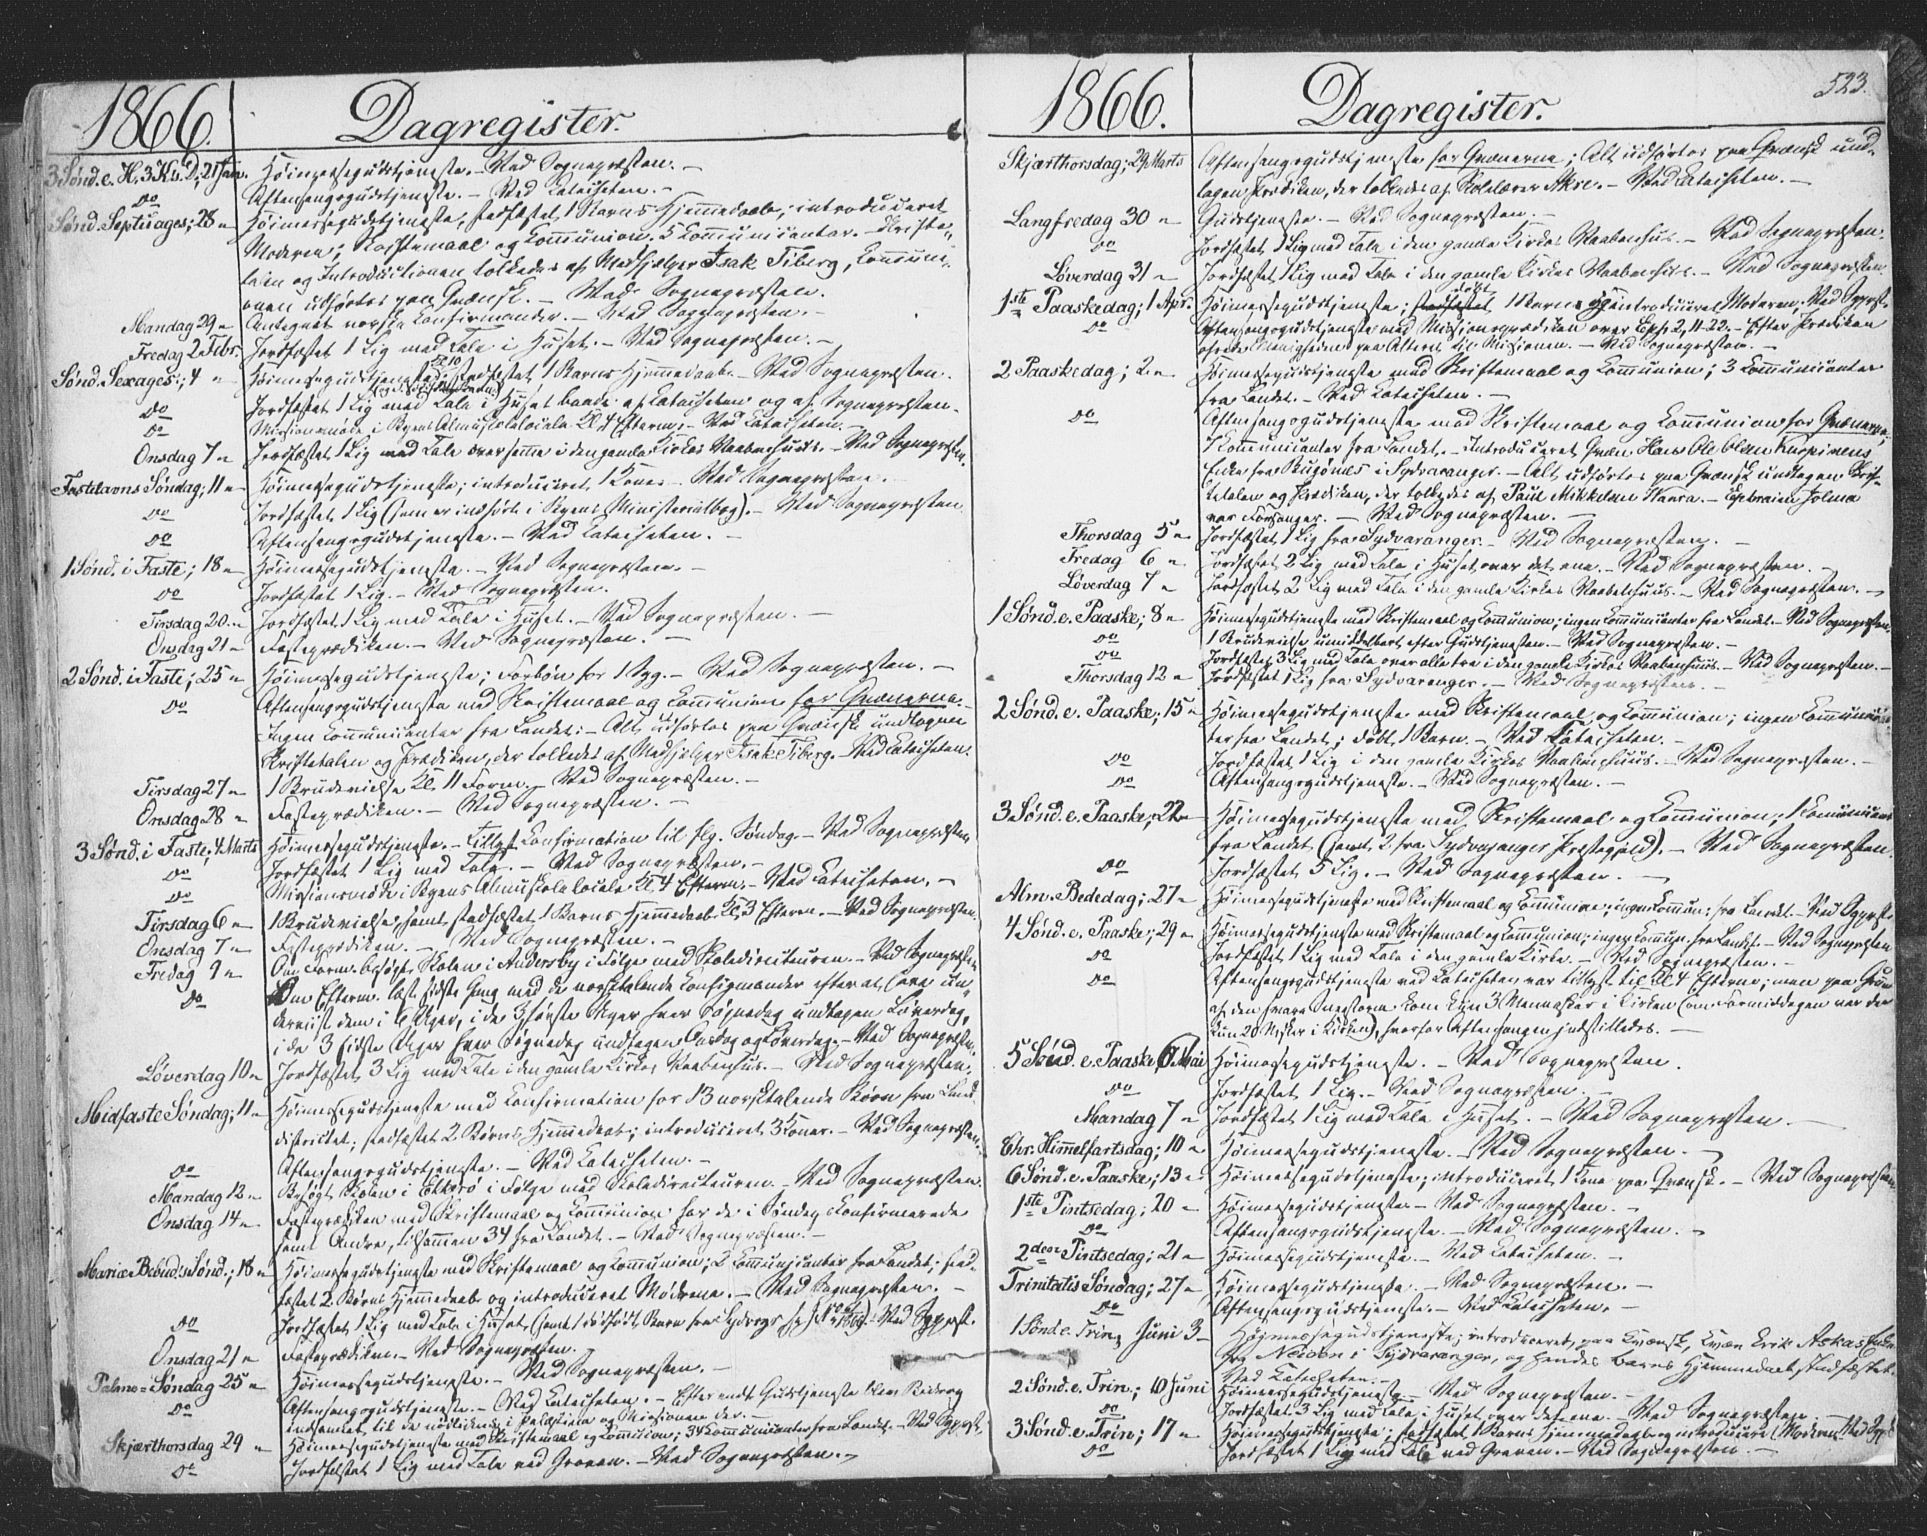 1866. Dagregister.
3 Sønd. e. H. 3 K. D.; 21 Jan. Høimessegudstjeneste. - Ved Sognepræsten. -
Do Aftensangsgudstjeneste. - Ved Catecheten. -
Sønd. Septuages; 28 " Høimessegudstjeneste; stadfæstet 1 Barns Hjemmedaab; introduceret
Moderen; Skriftemaal og Communion. 5 Communicanter. - Skrifte-
talen og Introductionen tolkedes af Medhjælper Isak Tiberg, Communi-
onen udførtes paa Qvænsk. - Ved Sognepræsten.
Mandag 29 " Antegnet norske Confirmander. - Ved Sognepræsten. -
Fredag 2 Febr. Jordfæstet 1 Lig med Tale i Huset. - Ved Sognepræsten. -
Sønd. Sexages; 4 " Høimessegudstjeneste; stadfæstet 1 Barns Hjemmedaab. - Ved Sognepræsten.
Do Jordfæstet 1 Lig med Tale i Huset baade af Catecheten og af Sognepræsten.
Do Missionsmøde i Byens Almueskolelocale Kl. 4 Efterm. - Ved Catecheten. -
Onsdag 7 " Jordfæstet 1 Lig med Tale over samme i den gamle Kirkes Vaabenhuus. - Ved Sognepræsten.
Fastelavns Søndag; 11 " Høimessegudstjeneste; introduceret 1 Kone. - Ved Sognepræsten. -
Do Jordfæstet 1 Lig (som er indført i Byens Ministerialbog). - Ved Sognepræsten.
Do Aftensangsgudstjeneste. - Ved Catecheten. -
1 Sønd. i Faste; 18 " Høimessegudstjeneste. - Ved Sognepræsten. -
Do Jordfæstet 1 Lig. - Ved Sognepræsten.
Tirsdag 20. " Jordfæstet 1 Lig med Tale i Huset. - Ved Sognepræsten. -
Onsdag 21 " Fasteprædiken. - Ved Sognepræsten. -
2 Sønd. i Faste; 25 " Høimessegudstjeneste; Forbøn for 1 Syg. - Ved Sognepræsten. -
Do Aftensangsgudstjeneste med Skriftemaal og Communion for Qvænerne.
Ingen Communicanter fra Landet. - Alt udførtes paa Qvænsk undtagen
Skriftetalen og Prædiken, der tolkedes af Medhjælper Isak Tiberg. - Ved Catecheten.
Tirsdag 27 " 1 Brudevielse Kl. 11 Form. - Ved Sognepræsten. -
Onsdag 28 " Fasteprædiken. - Ved Sognepræsten. -
3 Sønd. i Faste; 4 Marts Høimessegudstjeneste. - Tillyst Confirmation til flg. Søndag. - Ved Sognepræsten
Do Jordfæstet 1 Lig med Tale. - Ved Sognepræsten. -
Do Missionsmøde i Byens Almueskolelocale Kl. 4 Efterm. - Ved Catecheten. -
Tirsdag 6 " 1 Brudevielse, samt stadfæstet 1 Barns Hjemmedaab Kl. 3 Efterm. - Ved Sognepræsten.
Onsdag 7 " Fasteprædiken. - Ved Sognepræsten. -
Fredag 9 " Om Form. besøgt Skolen i Andersby i Følge med Skoledirecteuren. - Ved Sognepræsten
Do Om Efterm. læst sidste Gang med de norsktalende Confirmander efter at have un-
derviist dem i 6 Uger, i de 3 første Uger hver Søgnedag undtagen Løverdag,
i de 3 sidste Uger hver Søgnedag undtagen Onsdag og Løverdag. - Ved Sognepræsten.
Løverdag 10 " Jordfæstet 3 Lig med Tale i den gamle Kirkes Vaabenhus. - Ved Sognepræsten.
Midfaste Søndag; 11 " Høimessegudstjeneste med Confirmation for 13 norsktalende Børn fra Land-
districtet; stadfæstet 2 Børns Hjemmedaab; introduceret 3 Koner. - Ved Sognepræsten.
Do Aftensangsgudstjeneste. - Ved Catecheten. -
Mandag 12 " Besøgt Skolen i Ekkerø i Følge med Skoledirecteuren. - Ved Sognepræsten
Onsdag 14 " Fasteprædiken med Skriftemaal og Communion for de i Søndags Confirmerede
samt Andre, tilsammen 34 fra Landet. - Ved Sognepræsten. -
Mariæ Bebud. Sønd.; 18 " Høimessegudstjeneste med Skriftemaal og Communion; 2 Communicanter fra Landet; stad-
fæstet 2 Børns Hjemmedaab og introduceret Mødrene. - Ved Sognepræsten. -
Do Jordfæstet 1 Lig med Tale i Huset, (samt 1 dødfødt Barn fra Sydvarg. ). - Ved Sgpræst.
Onsdag 21 " Fasteprædiken. - Ved Sognepræsten.
Palme-Søndag 25 " Høimessegudstjeneste. - Ved Sognepræsten. -
Do Aftensangsgudstjeneste. - Ved Catecheten. - Efter endt Gudstjeneste blev Bidrag
indsamlet til de nødlidende i Palæstina og Missionen der. -
Skjærthorsdag 29 " Høimessegudstjeneste med Skriftemaal og Communion; 34 Communicanter fra Landet. - Ved Sgpræst.
Do Jordfæstet 1 Lig med Tale ved Graven. - Ved Sognepræsten. -
1866. Dagregister. 523.
Skjærthorsdag; 29 Marts Aftensangsgudstjeneste for Qvænerne; Alt udførtes paa Qvænsk und-
tagen Prædiken, der tolkedes af Skolelærer Akre. - Ved Catecheten. -
Langfredag 30 " Gudstjeneste. - Ved Sognepræsten. -
Do Jordfæstet 1 Lig med Tale i den gamle Kirkes Vaabenhus. - Ved Sognepræsten.
Løverdag 31 " Jordfæstet 1 Lig med Tale i den gamle Kirkes Vaabenhus. - Ved Sognepræsten.
1ste Paaskedag; 1 Apr. Høimessegudstjeneste; døbt 1 Barn og introduceret Moderen. Ved Sgpræst.
Do Aftensangsgudstjeneste med Missionsprædiken over Eph. 2, 11-22. - Efter Prædiken
ofrede Menigheden paa Alteret til Missionen. - Ved Sognepræsten. -
2 Paaskedag; 2 " Høimessegudstjeneste med Skriftemaal og Communion; 3 Communicanter
fra Landet. - Ved Catecheten. -
Do Aftensangsgudstjeneste med Skriftemaal og Communion for Qvænerne;
1 Communicanter fra Landet. - Introduceret Qvæn Hans Ole Olsen Kurpinens
Enke fra Bugønes i Sydvaranger. - Alt udførtes paa Qvænsk undtagen Skrif-
tetalen og Prædiken, der tolkedes af Paul Mikkelsen Havra. - Ephraim Jolma
var Forsanger. - Ved Sognepræsten. -
Thorsdag 5 " Jordfæstet 1 Lig fra Sydvaranger. - Ved Sognepræsten. -
Fredag 6 " Jordfæstet 2 Lig med Tale i Huset over det ene. - Ved Sognepræsten. -
Løverdag 7 " Jordfæstet 2 Lig med Tale i den gamle Kirkes Vaabenhuus. - Ved Sognepræsten. -
1 Sønd. e. Paaske; 8 " Høimessegudstjeneste med Skriftemaal og Communion; ingen Communicanter fra Landet. - Ved Sognepræsten.
Do 1 Brudevielse umiddelbart efter Gudstjenesten. - Ved Sognepræsten. -
Do Jordfæstet 3 Lig med Tale over alle tre i den gamle Kirkes Vaabenhuus. - Ved Sognepræsten. -
Thorsdag 12 " Jordfæstet 1 Lig fra Sydvaranger. - Ved Sognepræsten. -
2 Sønd. e. Paaske; 15 " Høimessegudstjeneste med Skriftemaal og Communion; ingen Communican-
ter fra Landet; døbt 1 Barn. - Ved Catecheten. -
Do Jordfæstet 1 Lig i den gamle Kirkes Vaabenhuus. - Ved Sognepræsten. -
Do Aftensangsgudstjeneste. - Ved Sognepræsten. -
3 Sønd. e. Paaske; 22 " Høimessegudstjeneste med Skriftemaal og Communion; 1 Communicant
fra Landet (samt 2 fra Sydvarangers Præstegjeld). - Ved Sognepræsten.
Do Jordfæstet 5 Lig. - Ved Sognepræsten. -
Alm. Bededag; 27 " Høimessegudstjeneste med Skriftemaal og Communion; ingen Commun: fra Landet. - Ved Sgpræst.
4 Sønd. e. Paaske; 29 " Høimessegudstjeneste med Skriftemaal og Communion; ingen Commun. fra Landet. - Ved Sognepræsten
Do Jordfæstet 1 Lig med Tale i den gamle Kirke. - Ved Sognepræsten. -
Do Aftensangsgudstjeneste ved Catecheten var tillyst til Kl. 4 Efterm.; men paa Grund
af den svare Snestorm kom kun 3 Mennesker i Kirken (om Formiddagen var der
kun 20 Msker i Kirken), hvorfor Aftensangen indstilledes. -
5 Sønd. e. Paaske 6 Mai Høimessegudstjeneste. - Ved Sognepræsten.
Do Jordfæstet 1 Lig. - Ved Sognepræsten. -
Mandag 7 " Jordfæstet 1 Lig med Tale i Huset. - Ved Sognepræsten. -
Chr. Himmelfartsdag; 10 " Høimessegudstjeneste. - Ved Sognepræsten. -
6 Sønd. e. Paaske; 13 " Høimessegudstjeneste; introduceret 1 Kone paa Qvænsk. - Ved Sognepræsten
1ste Pintsedag; 20 " Høimessegudstjeneste. - Ved Sognepræsten. -
Do Aftensangsgudstjeneste. - Ved Sognepræsten. -
2den Pintsedag; 21 " Høimessegudstjeneste. - Ved Catecheten. -
Trinitatis Søndag; 27 " Høimessegudstjeneste. - Ved Sognepræsten. -
Do Aftensangsgudstjeneste. - Ved Catecheten. -
1 Sønd e. Trin; Juni 3 Høimessegudstjeneste; introduceret, paa Qvænsk, Kvæn Erik Askas Enke
fra Neiden i Sydvaranger, og hendes Barns Hjemmedaab stadfæstet.
Ved Catecheten. -
2 Sønd. e. Trin; 10 Juni Høimessegudstjeneste. - Ved Sognepræsten. -
Do Jordfæstet 3 Lig med Tale i Huset over det ene. - Ved Sognepræsten. -
3 Sønd. e. Trin; 17 " Høimessegudstjeneste; stadfæstet 1 Barns Hjemmedaab og introduceret Moderen. Ved Sgpr.
Do Jordfæstet 1 Lig med Tale ved Graven. - Ved Sognepræsten. -